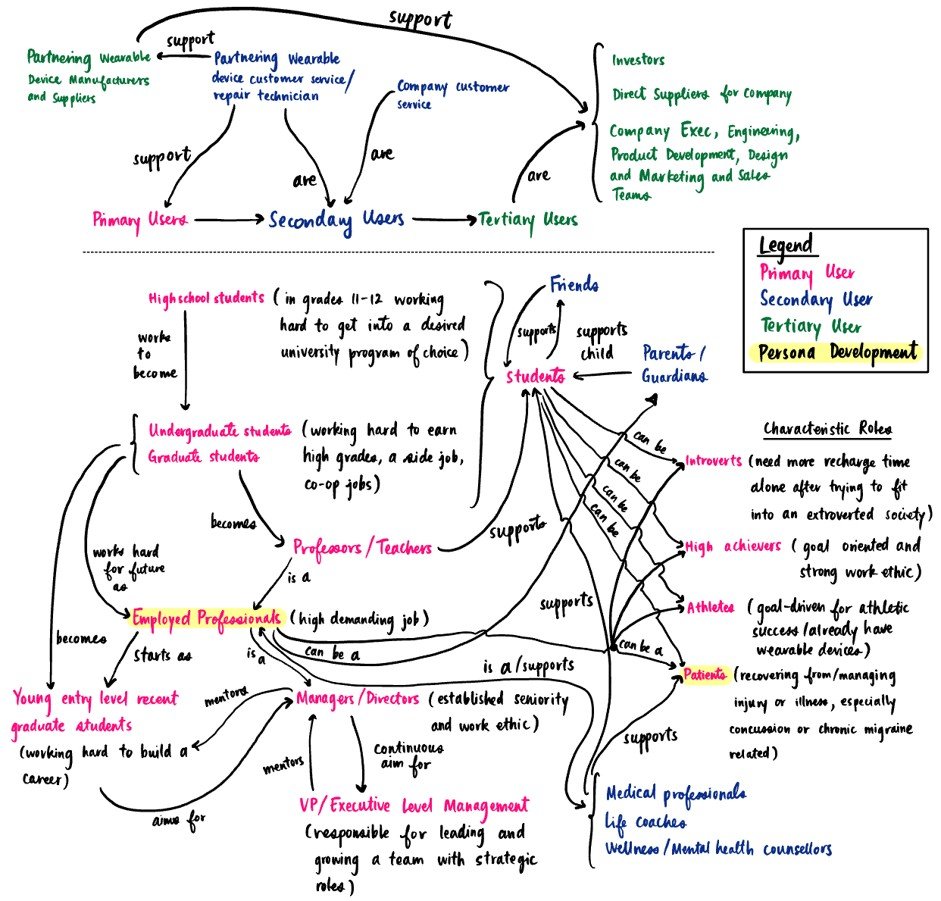 support
support
Partnering Wearable
Device Manufacturers
and Suppliers
Partnering Wearable
device customer service/
repair technician
Company customer
service
Investors
Direct Suppliers for Company
Company Exec, Engineering,
Product Development, Design
and Marketing and Sales
Teams
support
are
are
are
Primary Users
Secondary Users
Tertiary Users
Legend
Primary User
Secondary User
Tertiary User
Persona Development
Highschool students (in grades 11-12 working
hard to get into a desired
university program of choice)
works
to
become
Friends
supports
supports
child
Parents/
Guardians
Students
Undergraduate students
Graduate students
(working hard to earn
high grades, a side job,
co-op jobs)
becomes
Professors/Teachers
supports
works hard
for future
as
is a
Employed Professionals (high demanding job)
becomes
starts as
is a
can be a
is a/supports
supports
Young entry level recent
graduate students
(working hard to build a
career)
mentors
Managers/Directors (established seniority
and work ethic)
aims for
mentors
continuous
aim for
VP/Executive Level Management
(responsible for leading and
growing a team with strategic
roles)
Characteristic Roles
can be
can be
can be
can be
can be a
Introverts (need more recharge time
alone after trying to fit
into an extroverted society)
High achievers (goal oriented and
strong work ethic)
Athletes (goal-driven for athletic
success/already have
wearable devices)
Patients (recovering from/managing
injury or illness, especially
concussion or chronic migraine
related)
supports
Medical professionals
Life coaches
Wellness/Mental health counsellors